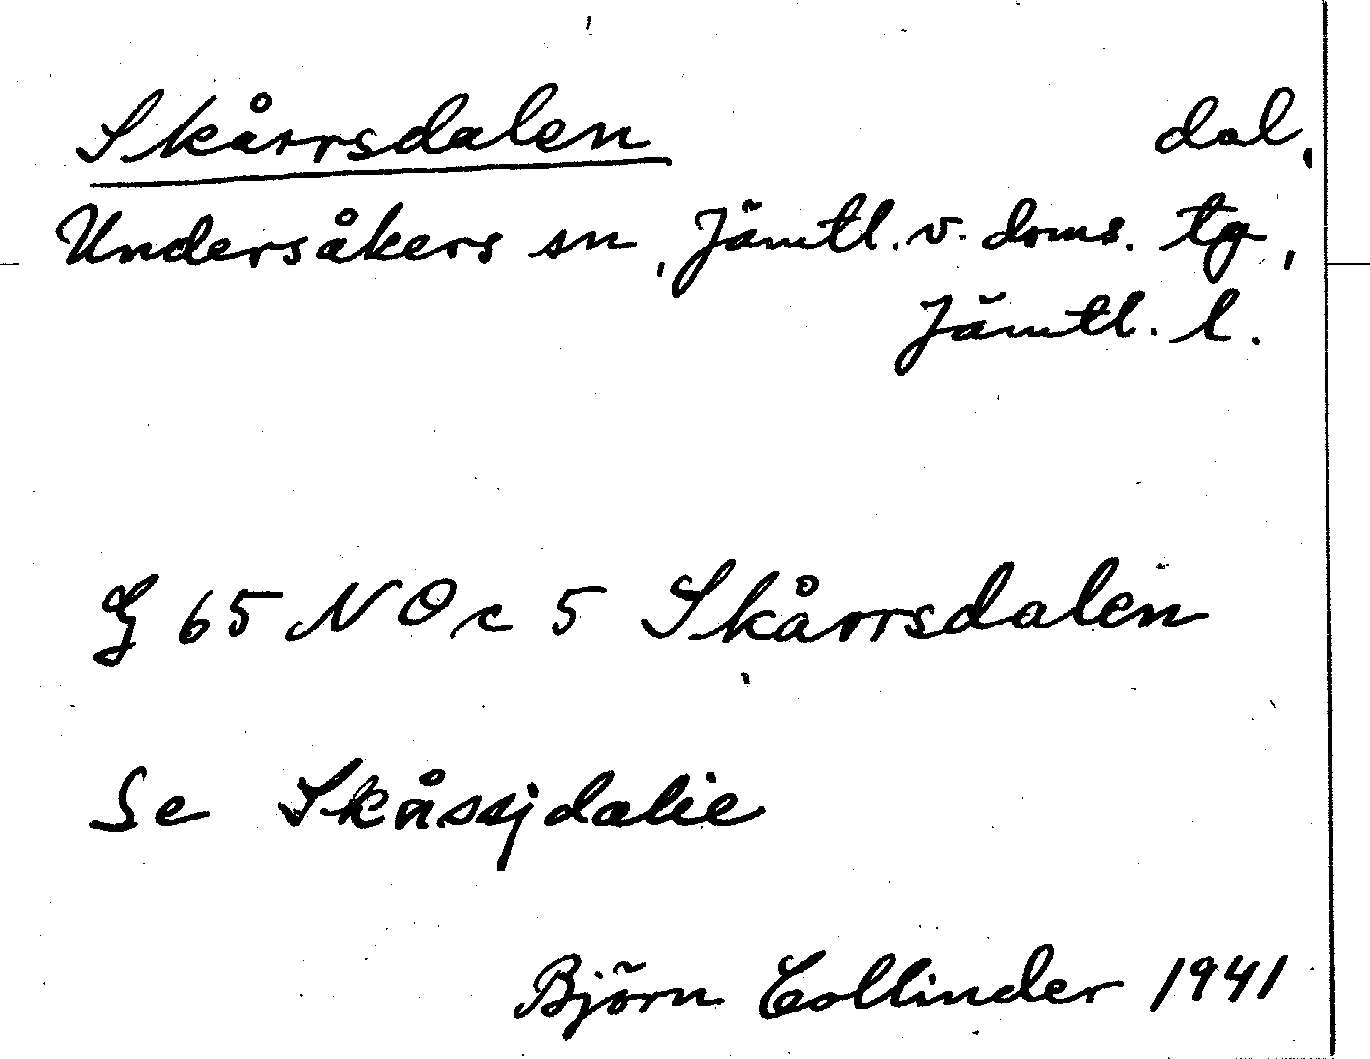 Skårrsdalen dal,
Undersåkers sn, Jämtl. v. doms. tg,
Jämtl. l.
G 65 NO c 5 Skårrsdalen
Se Skåssjdalie
Björn Collinder 1941